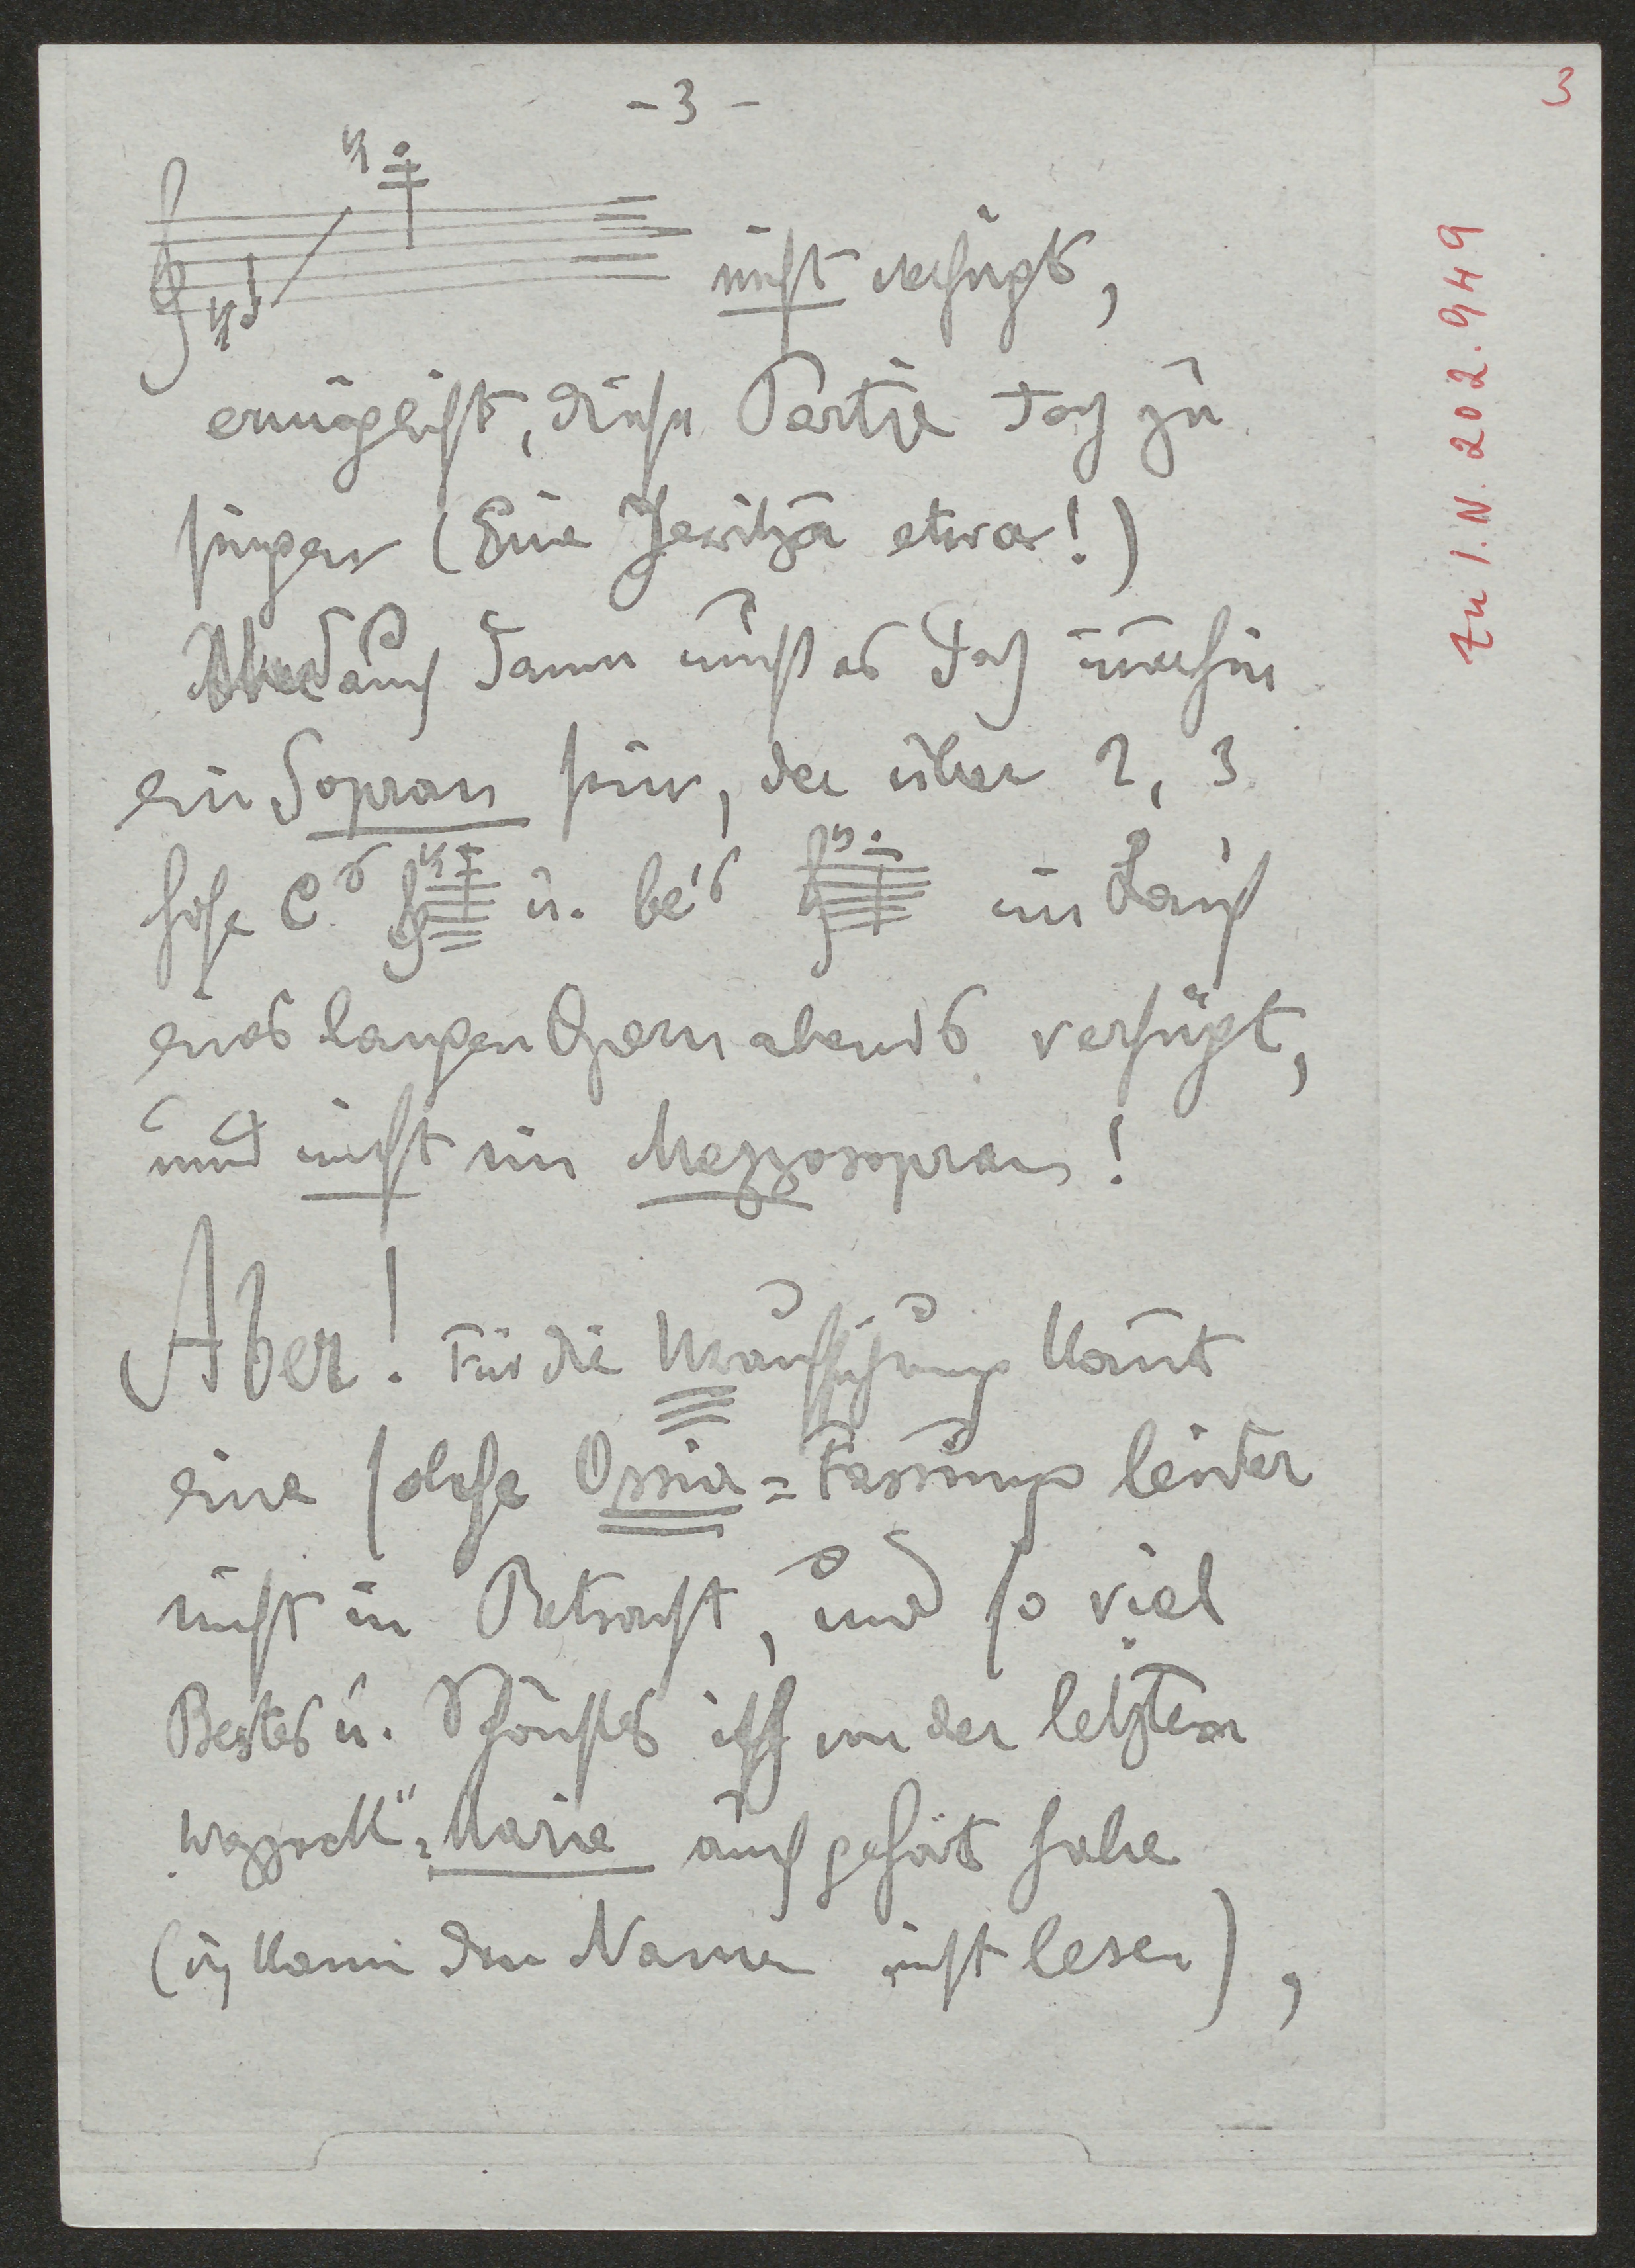 - 3 -
3
nicht verfügt,
ermöglicht, diese Partie doch zu
singen (Eine Jeritza etwa!)
Aber auch dann müßt es doch immerhin
ein Sopran sein, der über 2, 3
hohe C's u. be's im Lauf
eines langen Opernabends verfügt,
und nicht ein Mezzosopran!
Aber! Für die Uraufführung kom̄t
eine solche Ossia=Fassung leider
nicht in Betracht, und so viel
Bestes u. Schönstes ich von der letzten
Wozzeck"=Marie auch gehört habe
(ich kann den Namen nicht lesen),
zu I.N. 202.949